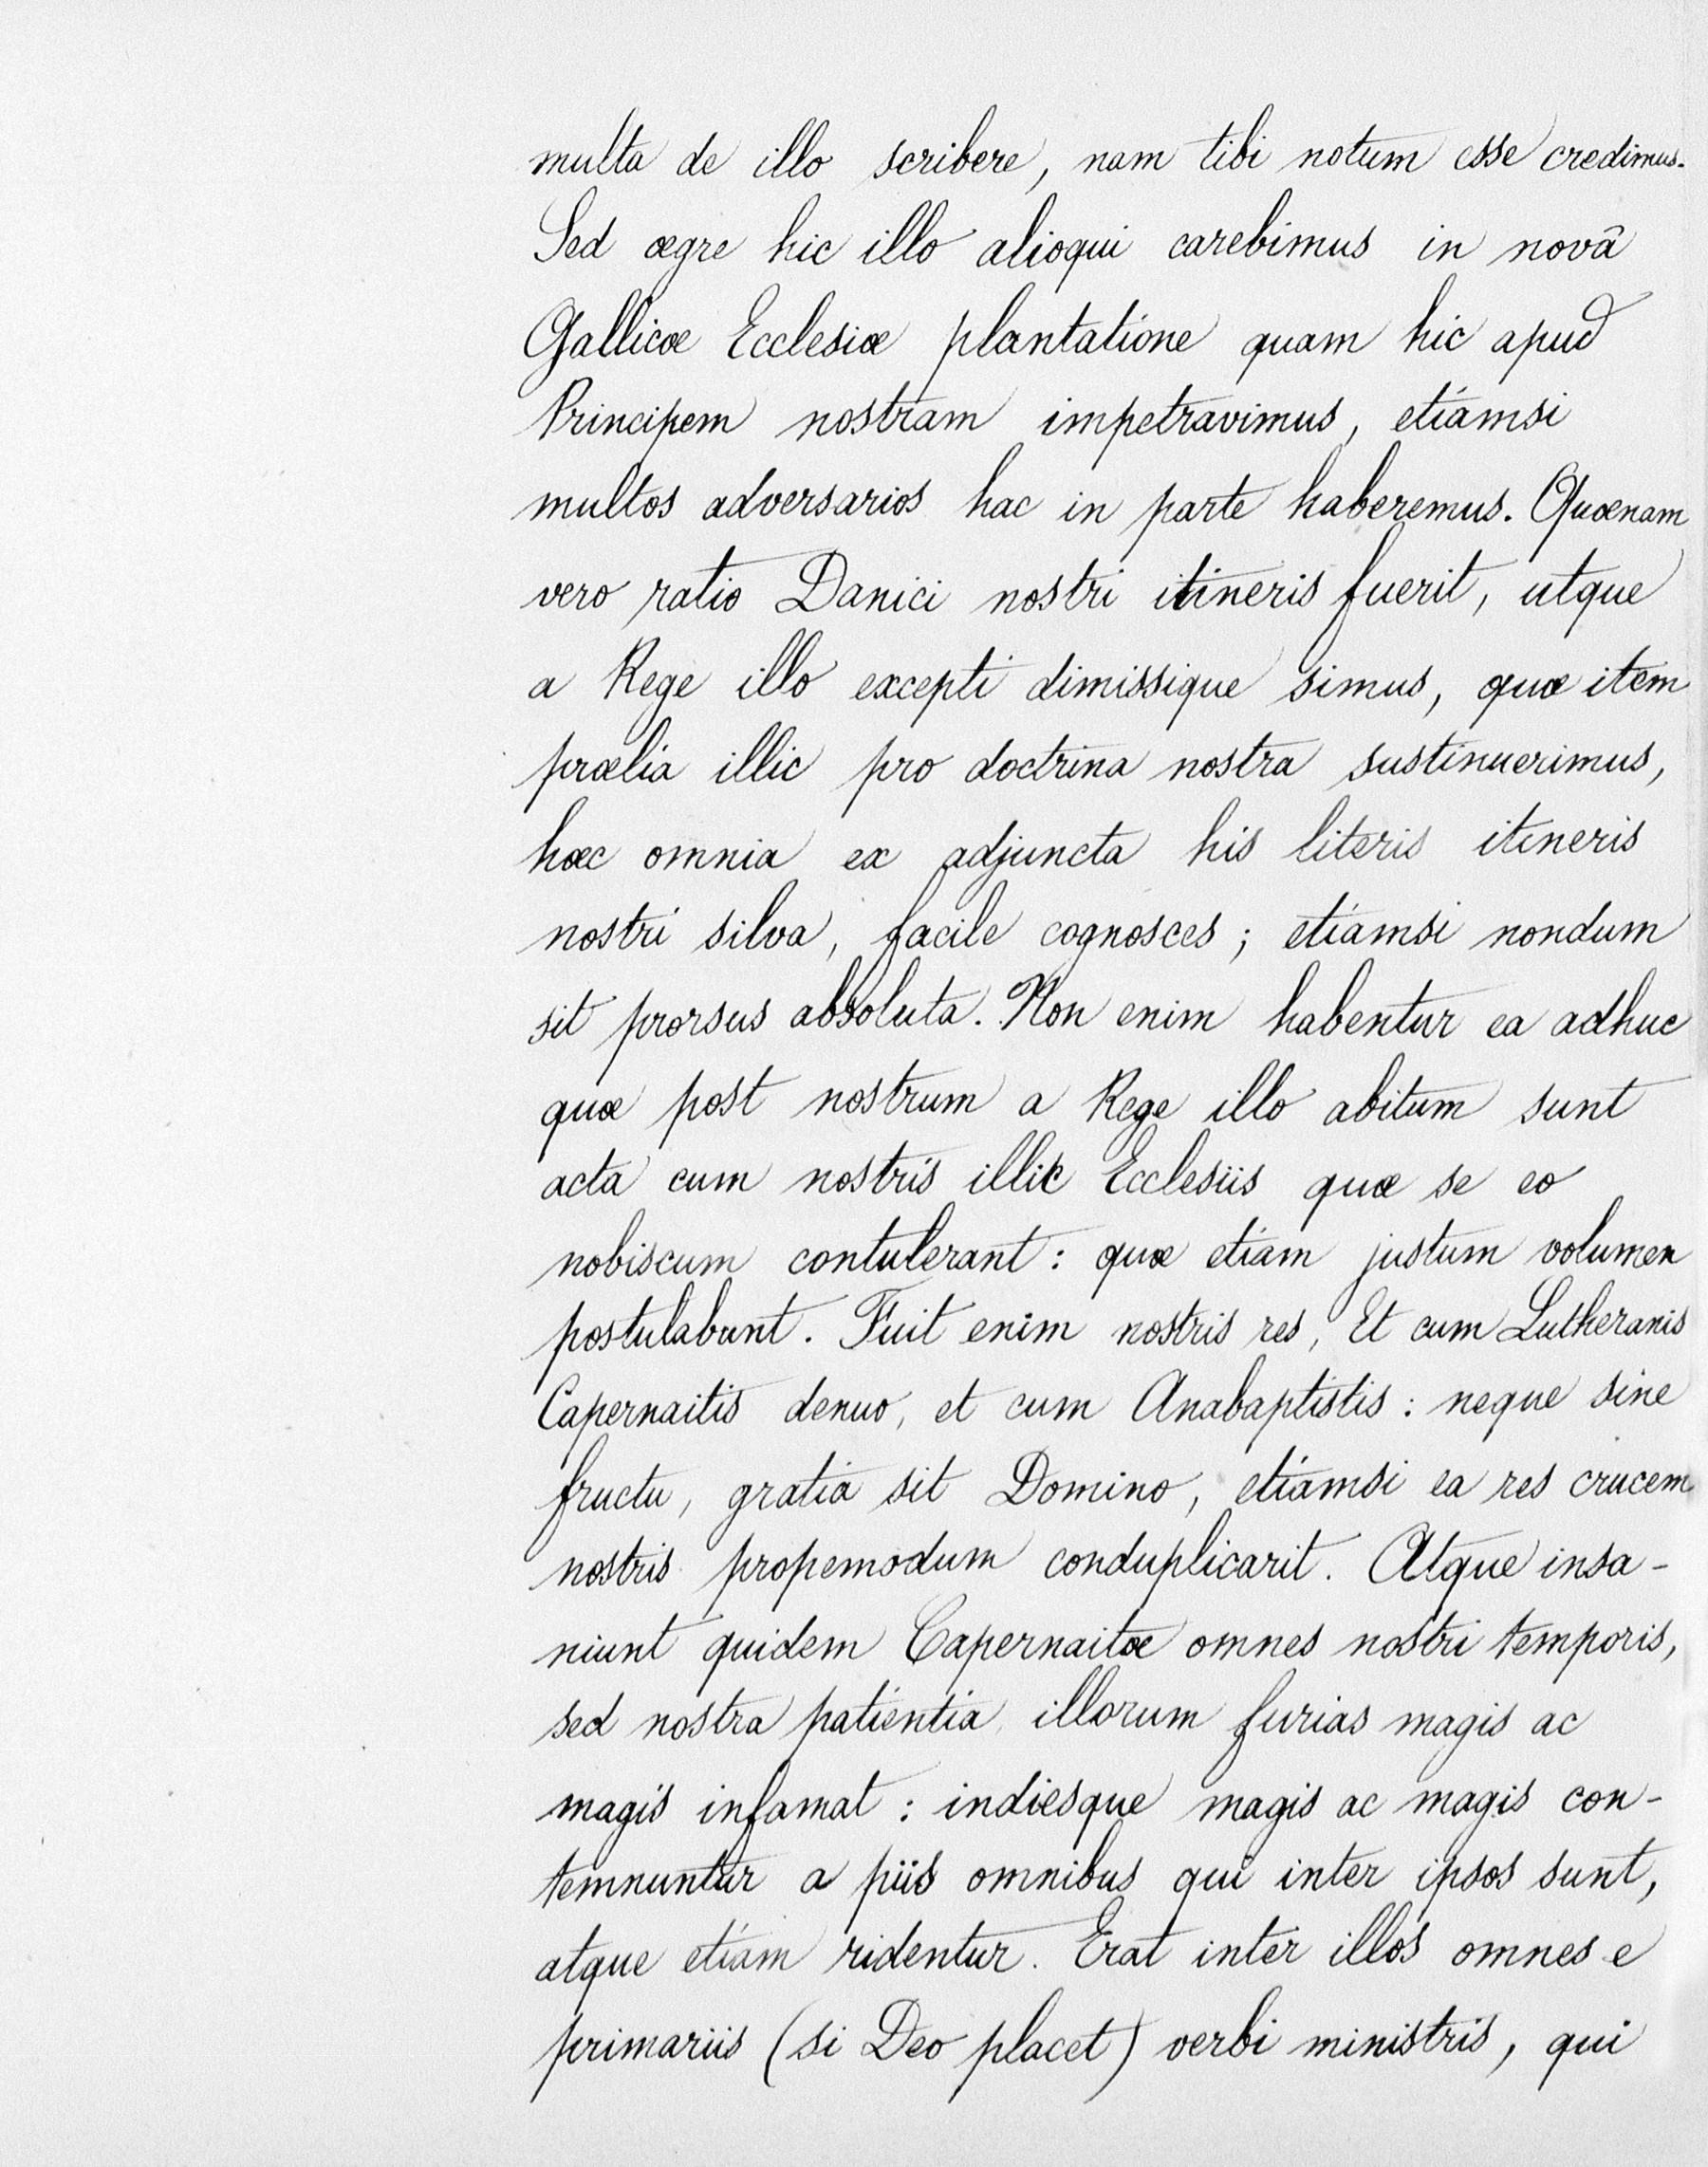 multa de illo scribere, nam tibi notum esse credimus.
Sed ægre hic illo alioqui carebimus in novâ
Gallicæ Ecclesiæ plantatione quam hic apud
Principem nostram impetravimus, etiamsi
multos adversarios hac in parte haberemus. Quænam
vero ratio Danici nostri itineris fuerit, utque
a Rege illo excepti dimissique simus, quæ item
prælia illic pro doctrina nostra sustinuerimus,
hæc omnia ex adjuncta his literis itineris
nostri silva, facile cognosces; etiamsi nondum
sit prorsus absoluta. Non enim habentur ea adhuc
quæ post nostrum a Rege illo abitum sunt
acta cum nostris illic Ecclesiis quæ se eo
nobiscum contulerant: quæ etiam justum volumen
postulabunt. Fuit enim nostris res, Et cum Lutheranis
Capernaitis denuo, et cum Anabaptistis: neque sine
fructu, gratia sit Domino, etiamsi ea res crucem
nostris propemodum conduplicarit. Atque insa-
niunt quidem Capernaitæ omnes nostri temporis,
sed nostra patientia illorum furias magis ac
magis infamat: indiesque magis ac magis con-
temnuntur a piis omnibus qui inter ipsos sunt,
atque etiam ridentur. Erat inter illos omnes e
primariis (si Deo placet) verbi ministris, qui